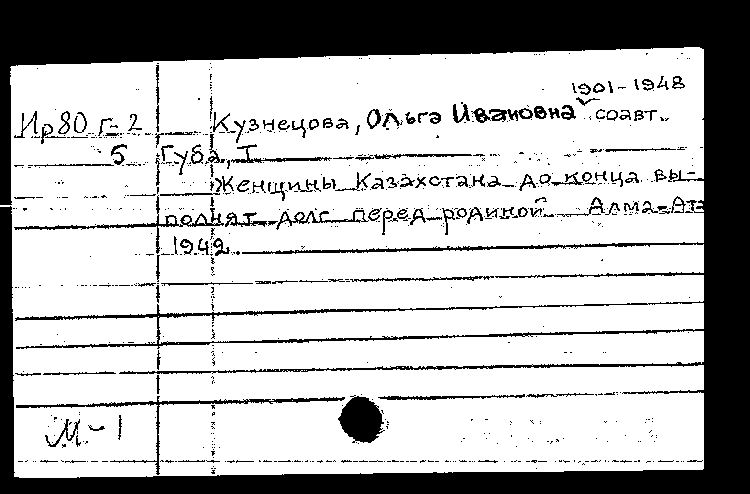 1901-1948
Ир80 г-2 Кузнецова, Ольга Ивановна соавт.
5 Губа, Т
Женщины Казахстана до конца вы-
полнят долг перед родиной Алма-Ата
1942.
М-1